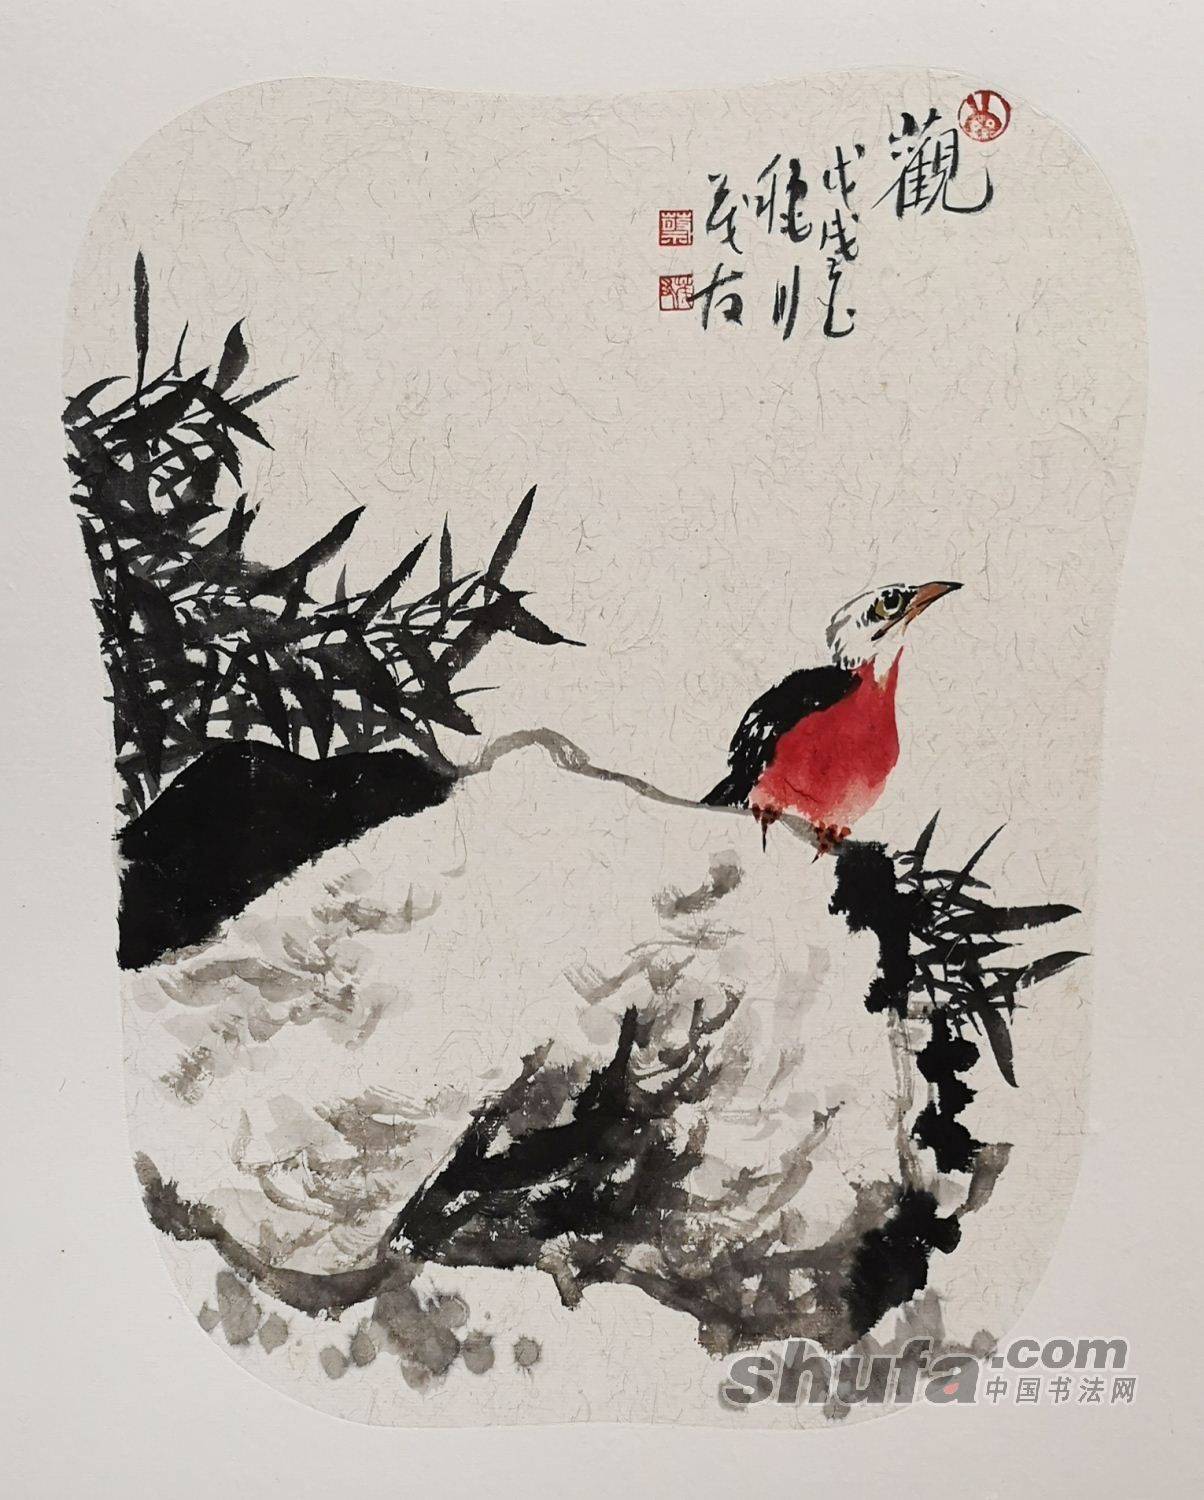 觀
戊戌
茂友
蔡
shufa.com
中国书法网